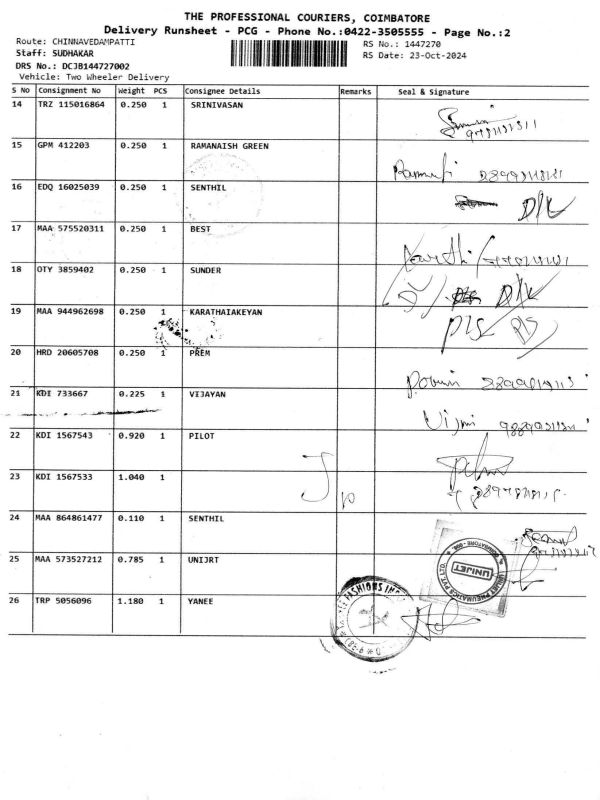 THE PROFESSIONAL COURIERS, COIMBATORE
Delivery Runsheet - PCG - Phone No.:0422-3505555 - Page No.:2
Route: CHINNAVEDAMPATTI RS No.: 1447270
Staff: SUDHAKAR RS Date: 23-Oct-2024
DRS No.: DCJB144727002
Vehicle: Two Wheeler Delivery
S No Consignment No Weight PCS Consignee Details Remarks Seal & Signature
14 TRZ 115016864 0.250 1 SRINIVASAN
15 GPM 412203 0.250 1 RAMANAISH GREEN
16 EDQ 16025039 0.250 1 SENTHIL D/L
17 MAA 575520311 0.250 1 BEST
18 OTY 3859402 0.250 1 SUNDER DL D/L
19 MAA 944962698 0.250 1 KARATHAIAKEYAN
20 HRD 20605708 0.250 1 PREM
21 KDI 733667 0.225 1 VIJAYAN
22 KDI 1567543 0.920 1 PILOT
23 KDI 1567533 1.040 1
24 MAA 864861477 0.110 1 SENTHIL
25 MAA 573527212 0.785 1 UNIJRT UNIJET UNIJET PNEUMATICS PVT. LTD.
26 TRP 5056096 1.180 1 YANEE FASHIONS INC